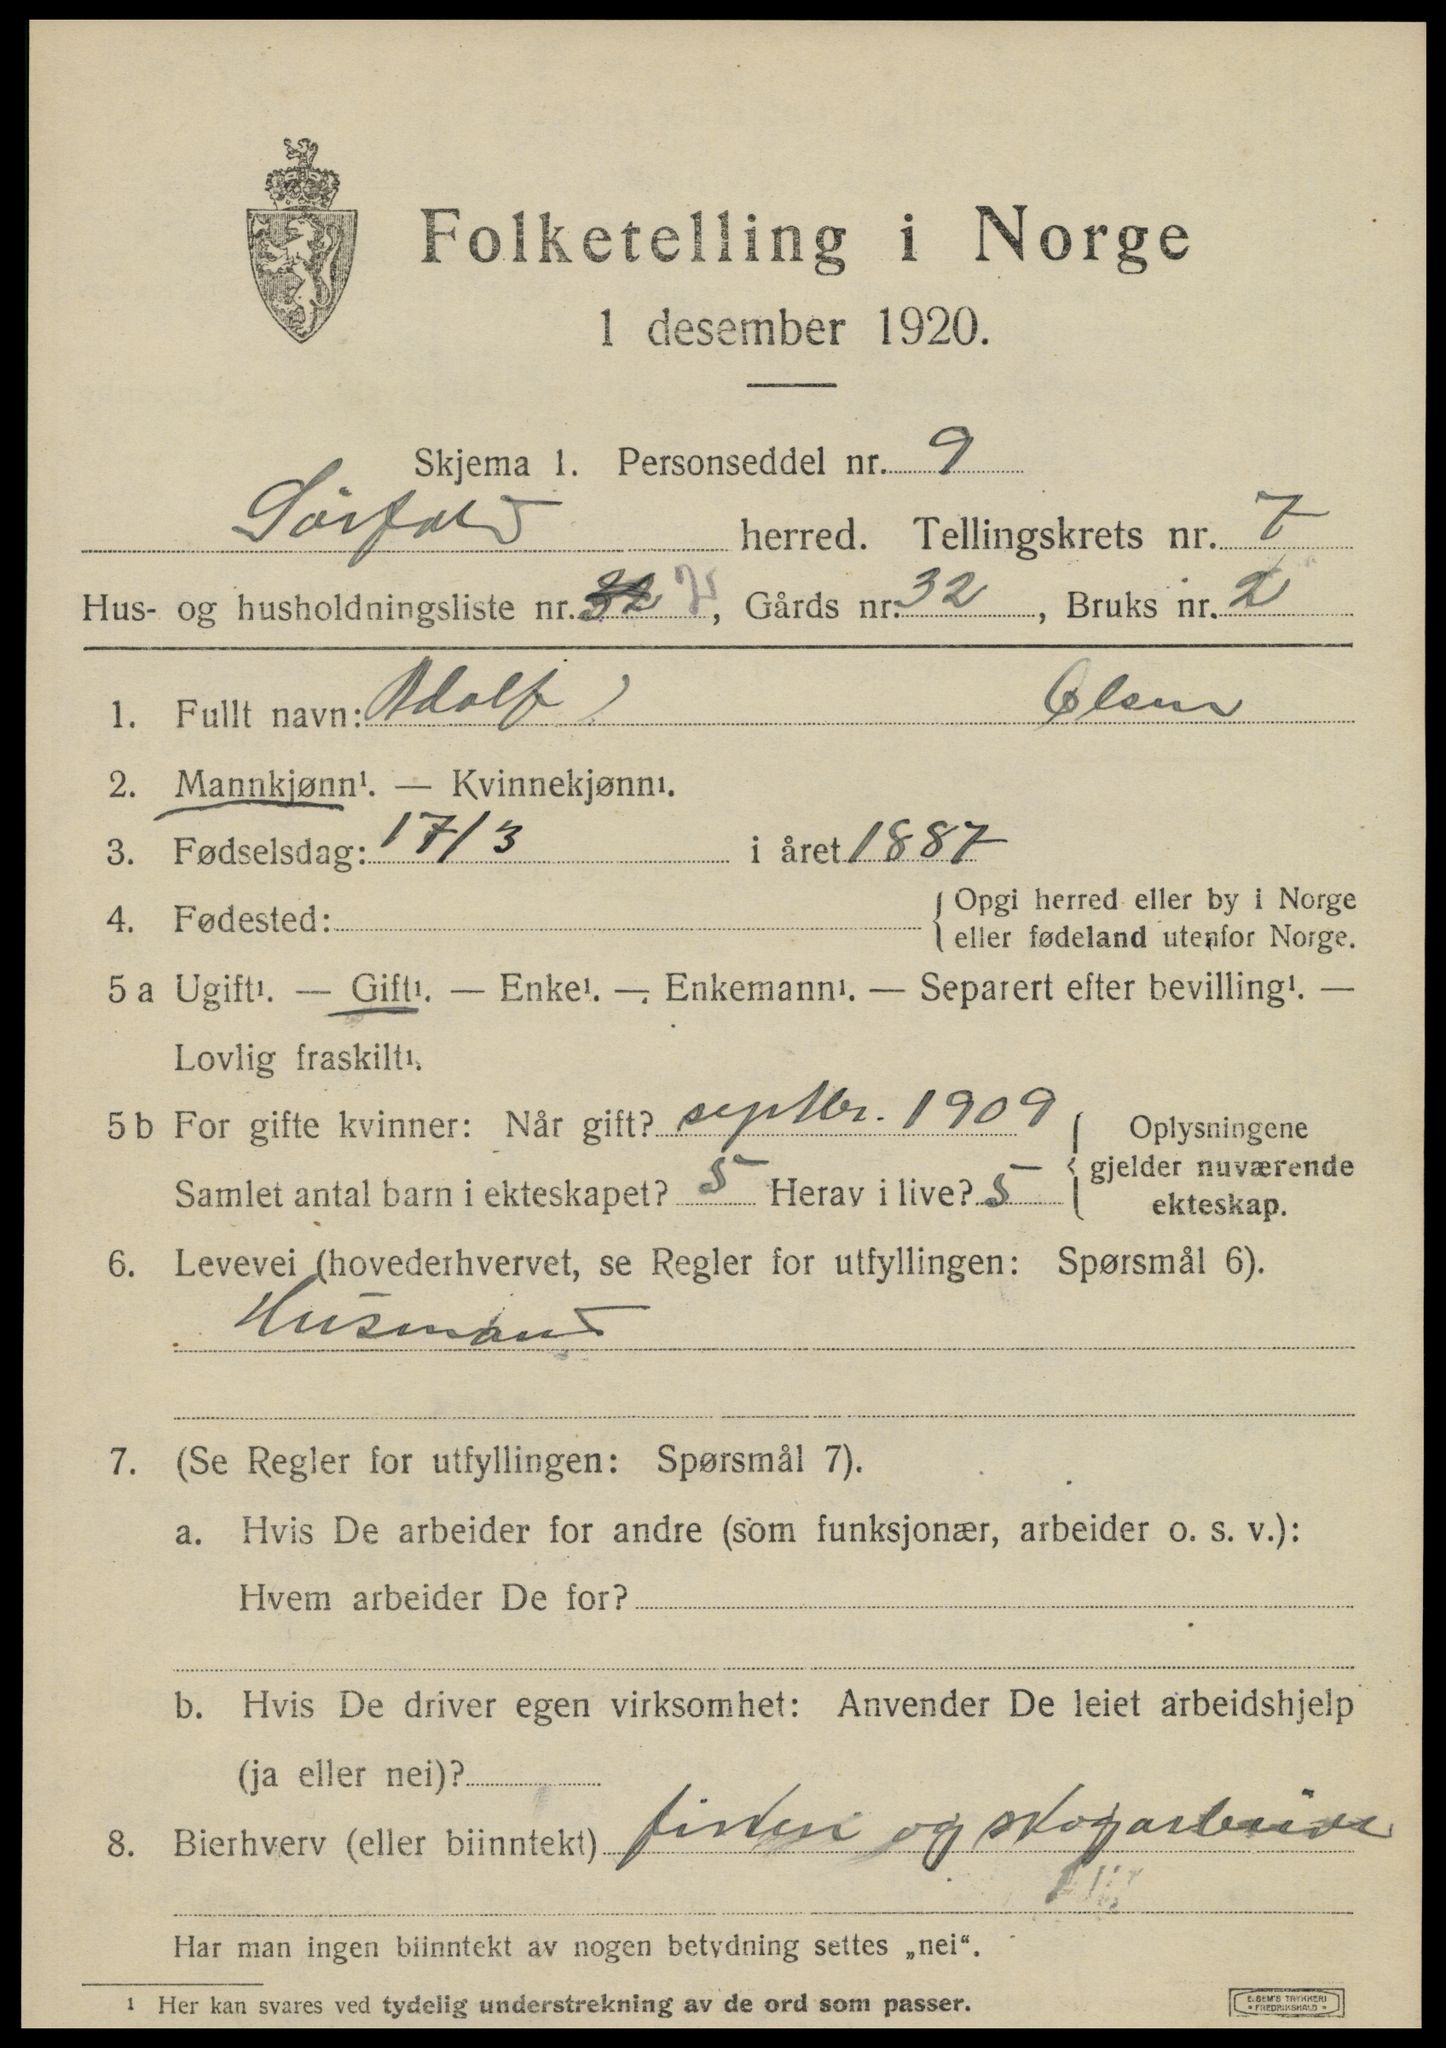 Folketelling i Norge
1 desember 1920.
Skjema 1. Personseddel nr. 9
Sørfold herred. Tellingskrets nr. 7
Hus- og husholdningsliste nr. 32, Gårds nr. 32, Bruks nr. 2
1. Fullt navn: Adolf Olsen
2. Mannkjønn¹. — Kvinnekjønn¹.
3. Fødselsdag: 17/3 i året 1887
4. Fødested: { Opgi herred eller by i Norge
eller fødeland utenfor Norge.
5 a Ugift¹. — Gift¹. — Enke¹. — Enkemann¹. — Separert efter bevilling¹. —
Lovlig fraskilt¹.
5 b For gifte kvinner: Når gift? septbr. 1909 { Oplysningene
gjelder nuværende
Samlet antal barn i ekteskapet? 5 Herav i live? 5 ekteskap.
6. Levevei (hovederhvervet, se Regler for utfyllingen: Spørsmål 6).
Husmand
7. (Se Regler for utfyllingen: Spørsmål 7).
a. Hvis De arbeider for andre (som funksjonær, arbeider o. s. v.):
Hvem arbeider De for?
b. Hvis De driver egen virksomhet: Anvender De leiet arbeidshjelp
(ja eller nei)?
8. Bierhverv (eller biinntekt) fisker og skogarbeide
Har man ingen biinntekt av nogen betydning settes „nei“.
¹ Her kan svares ved tydelig understrekning av de ord som passer.
E. SEM'S TRYKKERI
FREDRIKSHALD